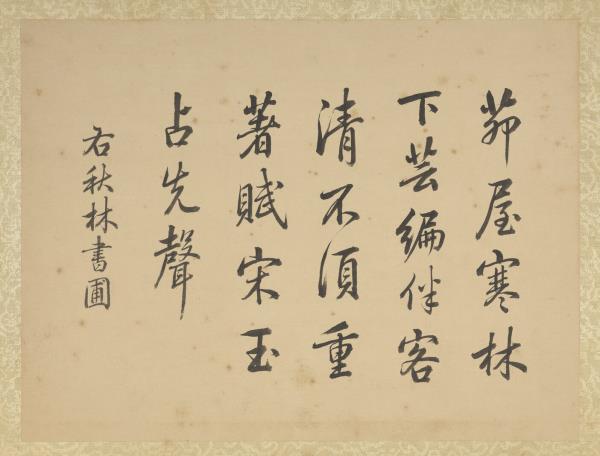 茆屋寒林
下芸編伴客
清不須重
著賦宋玉
占先聲
右秋林書圃